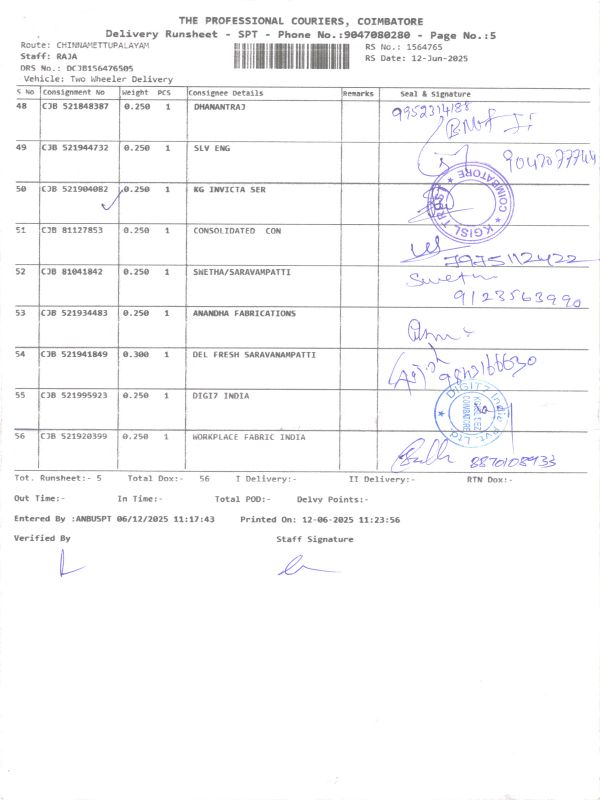 THE PROFESSIONAL COURIERS, COIMBATORE
Delivery Runsheet - SPT - Phone No.:9047080280 - Page No.:5
Route: CHINNAMETTUPALAYAM RS No.: 1564765
Staff: RAJA RS Date: 12-Jun-2025
DRS No.: DCJB156476505
Vehicle: Two Wheeler Delivery
S No Consignment No Weight PCS Consignee Details Remarks Seal & Signature
48 CJB 521848387 0.250 1 DHANANTRAJ 9952314188
49 CJB 521944732 0.250 1 SLV ENG
50 CJB 521904082 0.250 1 KG INVICTA SER KGISL COIMBATORE
51 CJB 81127853 0.250 1 CONSOLIDATED CON 7975112422
52 CJB 81041842 0.250 1 SWETHA/SARAVAMPATTI Swetha
9123563990
53 CJB 521934483 0.250 1 ANANDHA FABRICATIONS
54 CJB 521941849 0.300 1 DEL FRESH SARAVANAMPATTI 9843166630
55 CJB 521995923 0.250 1 DIGI7 INDIA DIGIT7 India Pvt. Ltd. COIMBATORE
56 CJB 521920399 0.250 1 WORKPLACE FABRIC INDIA 8870108933
Tot. Runsheet:- 5 Total Dox:- 56 I Delivery:- II Delivery:- RTN Dox:-
Out Time:- In Time:- Total POD:- Delvy Points:-
Entered By :ANBUSPT 06/12/2025 11:17:43 Printed On: 12-06-2025 11:23:56
Verified By Staff Signature